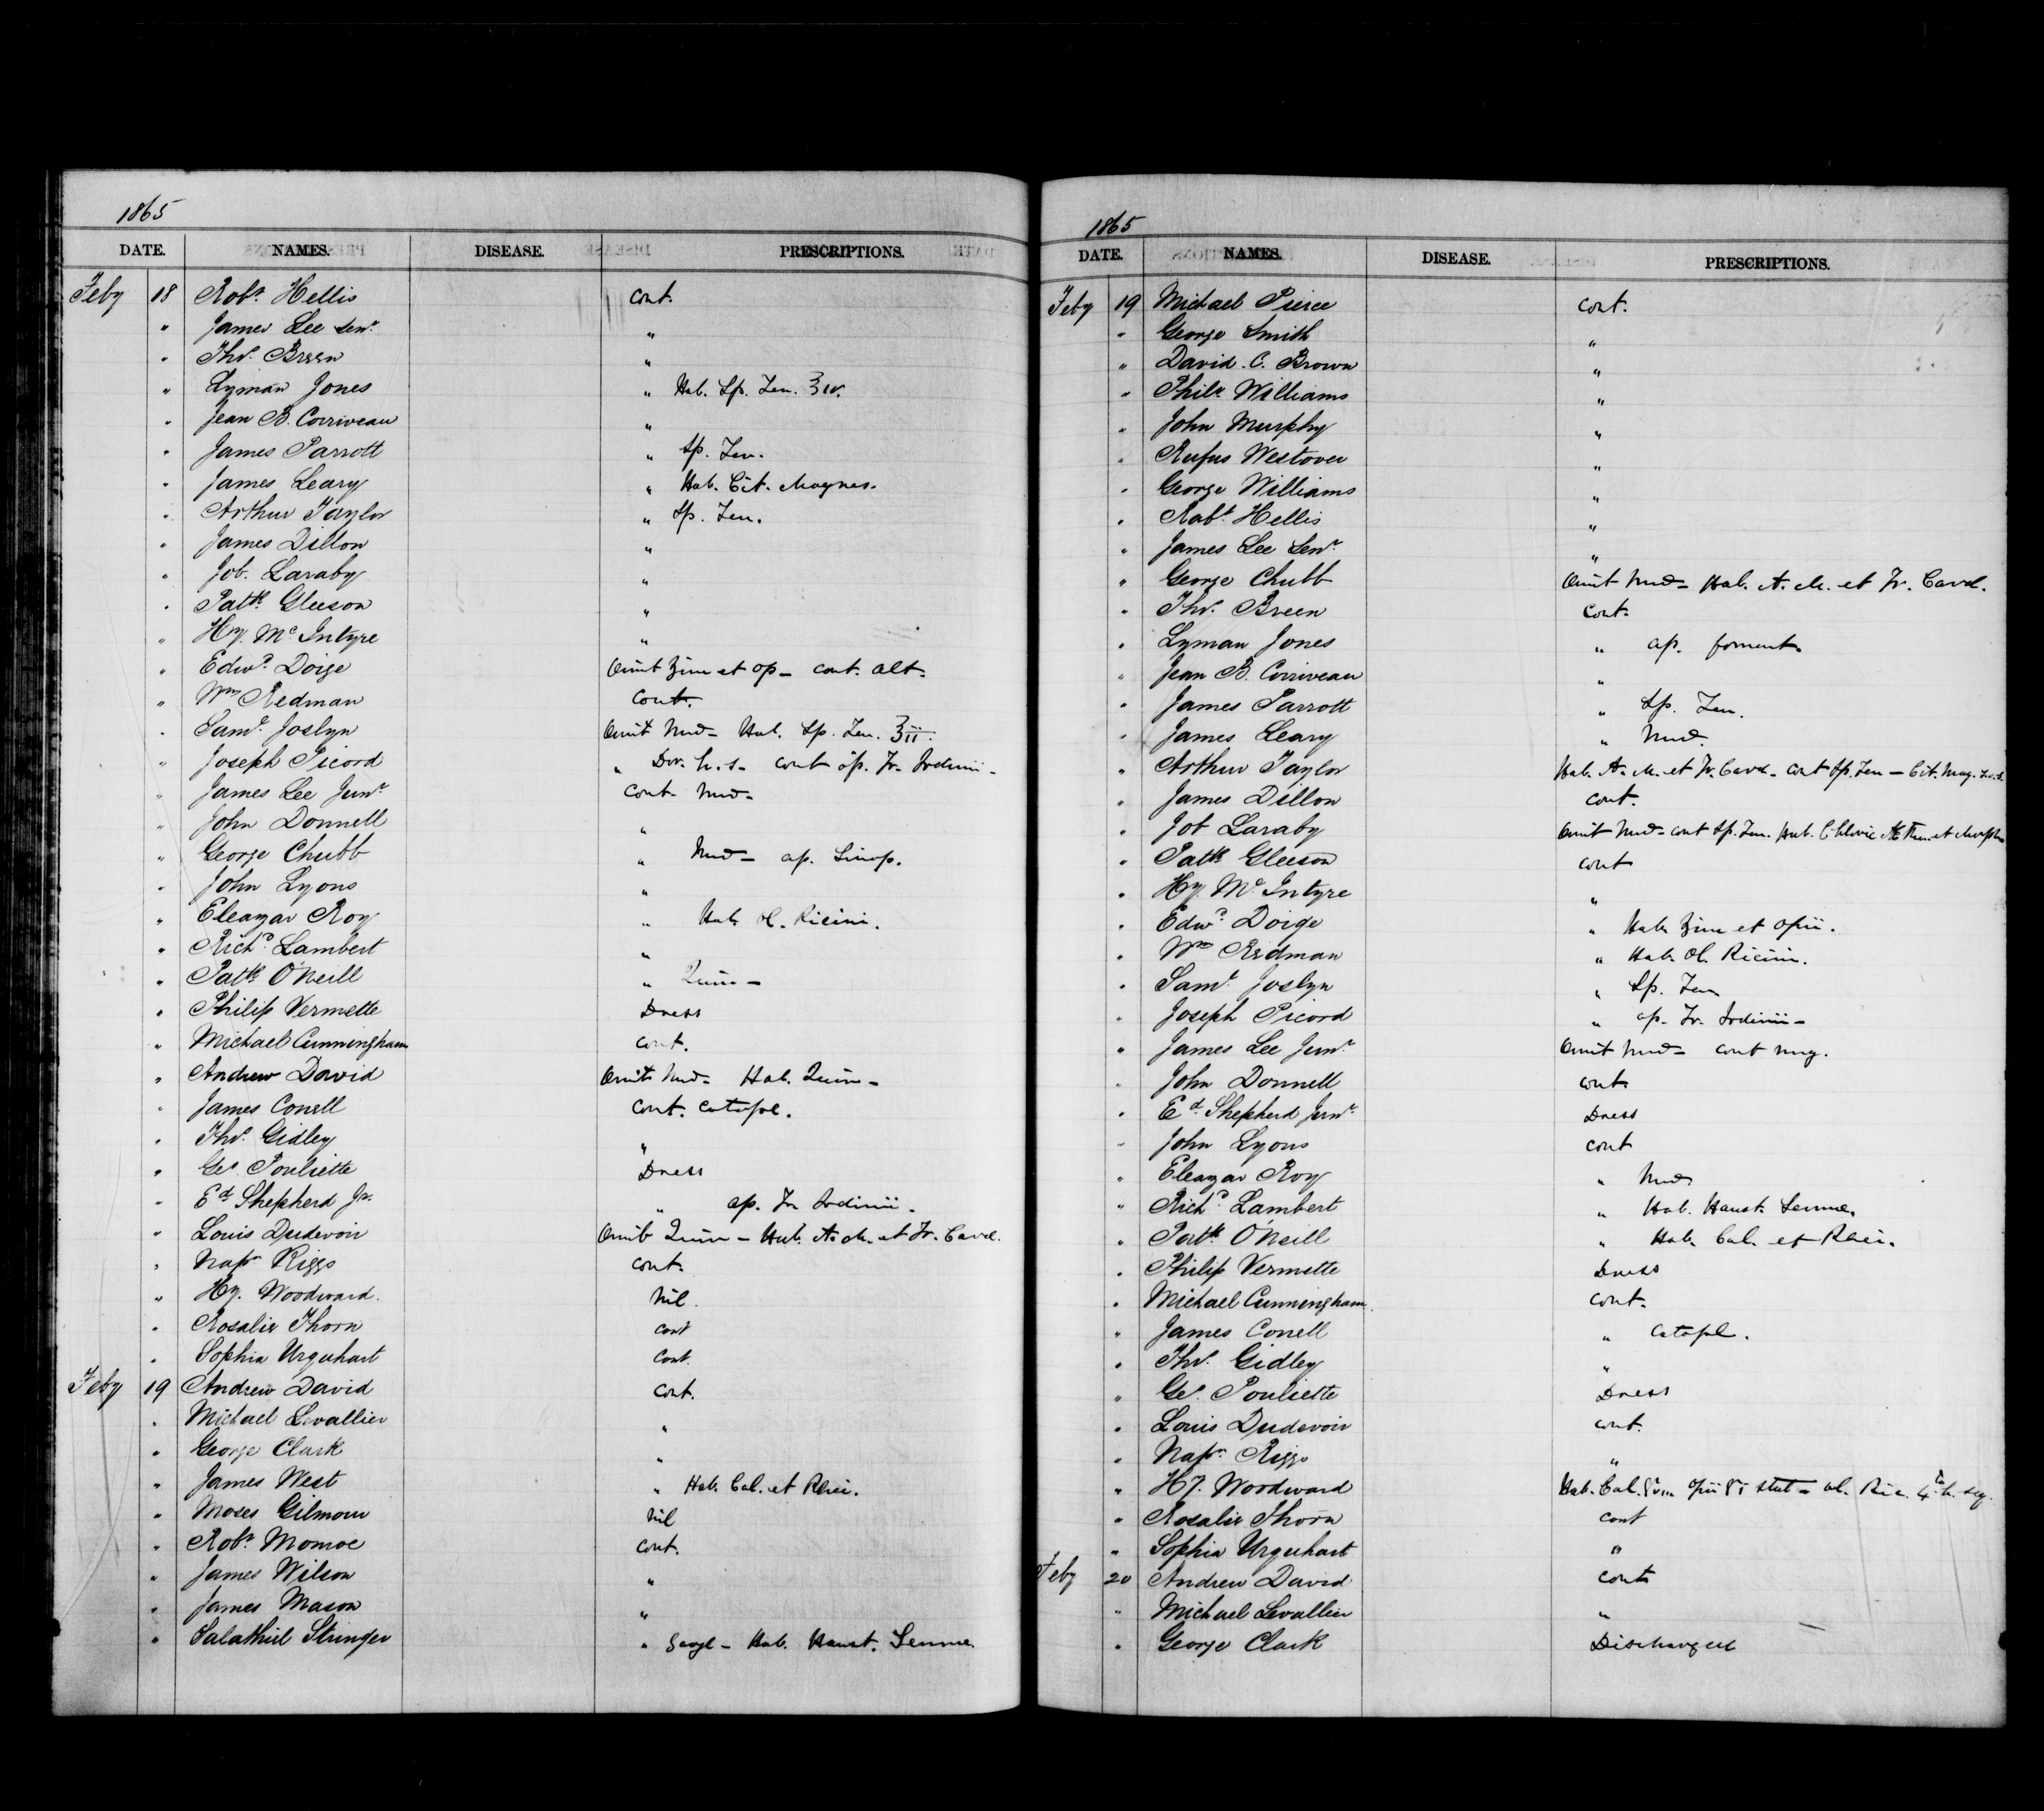 1865
DATE. NAMES. DISEASE. PRESCRIPTIONS.
Feby 18 Robt Hellis cont.
" James Lee Senr "
" Thos Breen "
" Lyman Jones " Hab. Sp. Ten. ʒiv.
" Jean B. Corriveau "
" James Parrott " Sp. Ten.
" James Leary " Hab. Cit. Magnes.
" Arthur Taylor " Sp. Ten.
" James Dillon "
" Job. Laraby "
" Patk Gleeson "
" Hy. Mc Intyre "
" Edwd Doige Omit et op - cont. alt.
" Wm Redman Cont.
" Saml Joslyn Omit Med - Hab. Sp. Ten. ʒii.
" Joseph Picord " Dov. h.s. cont ap. Tr. Iodinii -
" James Lee Junr cont. Med -
" John Donnell "
" George Chubb " Med - ap. Sinap.
" John Lyons "
" Eleazar Roy " Hab. Ol. Ricini.
" Richd Lambert "
" Patk O'Neill " Quin -
" Philip Vermette Dress
" Michael Cunningham cont.
" Andrew David Omit Med - Hab. Quin -
" James Conell cont. catapl.
" Thos Gidley "
" Geo. Pouliette Dress
" Ed Shepherd Jr. " ap. Tr Iodinii.
" Louis Dudevoir Omit Quin - Hab. A. M. et Tr. Card.
" Napn Riggs cont.
" Hy. Woodward. Nil.
" Rosalie Thorn cont
" Sophia Urquhart Cont.
Feby 19 Andrew David Cont.
" Michael Levallier "
" George Clark "
" James West " Hab. Cal. et Rhei.
" Moses Gilmour Nil
" Robt Monroe Cont.
" James Wilson "
" James Mason "
" Salathiel Stringer " Gargl - Hab. Haust. Sennae.
1865
DATE. NAMES. DISEASE. PRESCRIPTIONS.
Feby 19 Michael Pierce cont.
" George Smith "
" David. C. Brown "
" Philr Williams "
" John Murphy "
" Rufus Westover "
" George Williams "
" Robt Hellis "
" James Lee Senr "
" George Chubb Omit Med - Hab. A. M. et Tr. Card.
" Thos Breen Cont.
" Lyman Jones " ap. foment.
" Jean B. Corriveau "
" James Parrott " Sp. Ten.
" James Leary " Med.
" Arthur Taylor Hab. A. M. et Tr. Card. Cont Sp. Ten - Cit. Mag.
" James Dillon cont.
" Job Laraby Omit Med - cont Sp. Ten. Hab. Chloric et Morph
" Patk Gleeson cont
" Hy. Mc Intyre "
" Edwd Doige " Hab. et opii.
" Wm Redman " Hab. Ol. Ricini.
" Saml Joslyn " Sp. Ten
" Joseph Picord " ap. Tr. Iodinii -
" James Lee Junr Omit Med - cont ung.
" John Donnell cont.
" Ed Shepherd Junr Dress
" John Lyons cont
" Eleazar Roy " Med.
" Richd Lambert " Hab. Haust. Sennae.
" Patk O'Neill " Hab. Cal. et Rhei.
" Philip Vermette Dress
" Michael Cunningham. cont.
" James Conell " Catapl.
" Thos Gidley "
" Geo. Pouliette Dress
" Louis Dudevoir cont.
" Napn Riggs "
" Hy. Woodward Hab. Cal. opii gr i stat - Ol. Ric. 4 h. seq.
" Rosalie Thorn cont
" Sophia Urquhart "
Feby 20 Andrew David cont
" Michael Levallier "
" George Clark Discharged